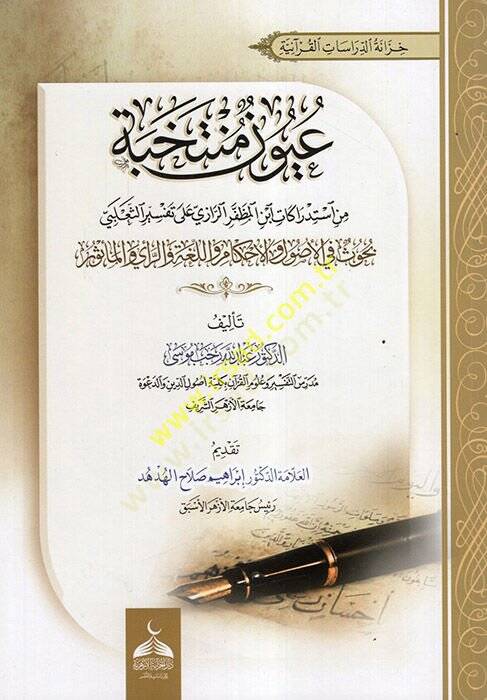 خِزَانَةُ الدِّرَاسَاتِ القُرْآنِيَّةِ
عُيُونٌ مُنْتَخَبَة
مِنِ اسْتِدْرَاكَاتِ ابْنِ المُظَفَّرِ الرَّازِيِّ عَلَى تَفْسِيرِ الثَّعْلَبِيِّ
بُحُوثٌ فِي الأُصُولِ وَالأَحْكَامِ وَاللُّغَةِ وَالرَّأْيِ وَالمَأْثُورِ
تَأْلِيفُ
الدكتور عبد الله رجب موسى
مُدَرِّسِ التَّفْسِيرِ وَعُلُومِ القُرْآنِ بِكُلِّيَّةِ أُصُولِ الدِّينِ وَالدَّعْوَةِ
جَامِعَةِ الأَزْهَرِ الشَّرِيفِ
تَقْدِيمُ
العَلَّامَة الدُّكتُور إِبْرَاهِيم صَلَاح الهُدْهُد
رَئِيسُ جَامِعَةِ الأَزْهَرِ الأَسْبَق